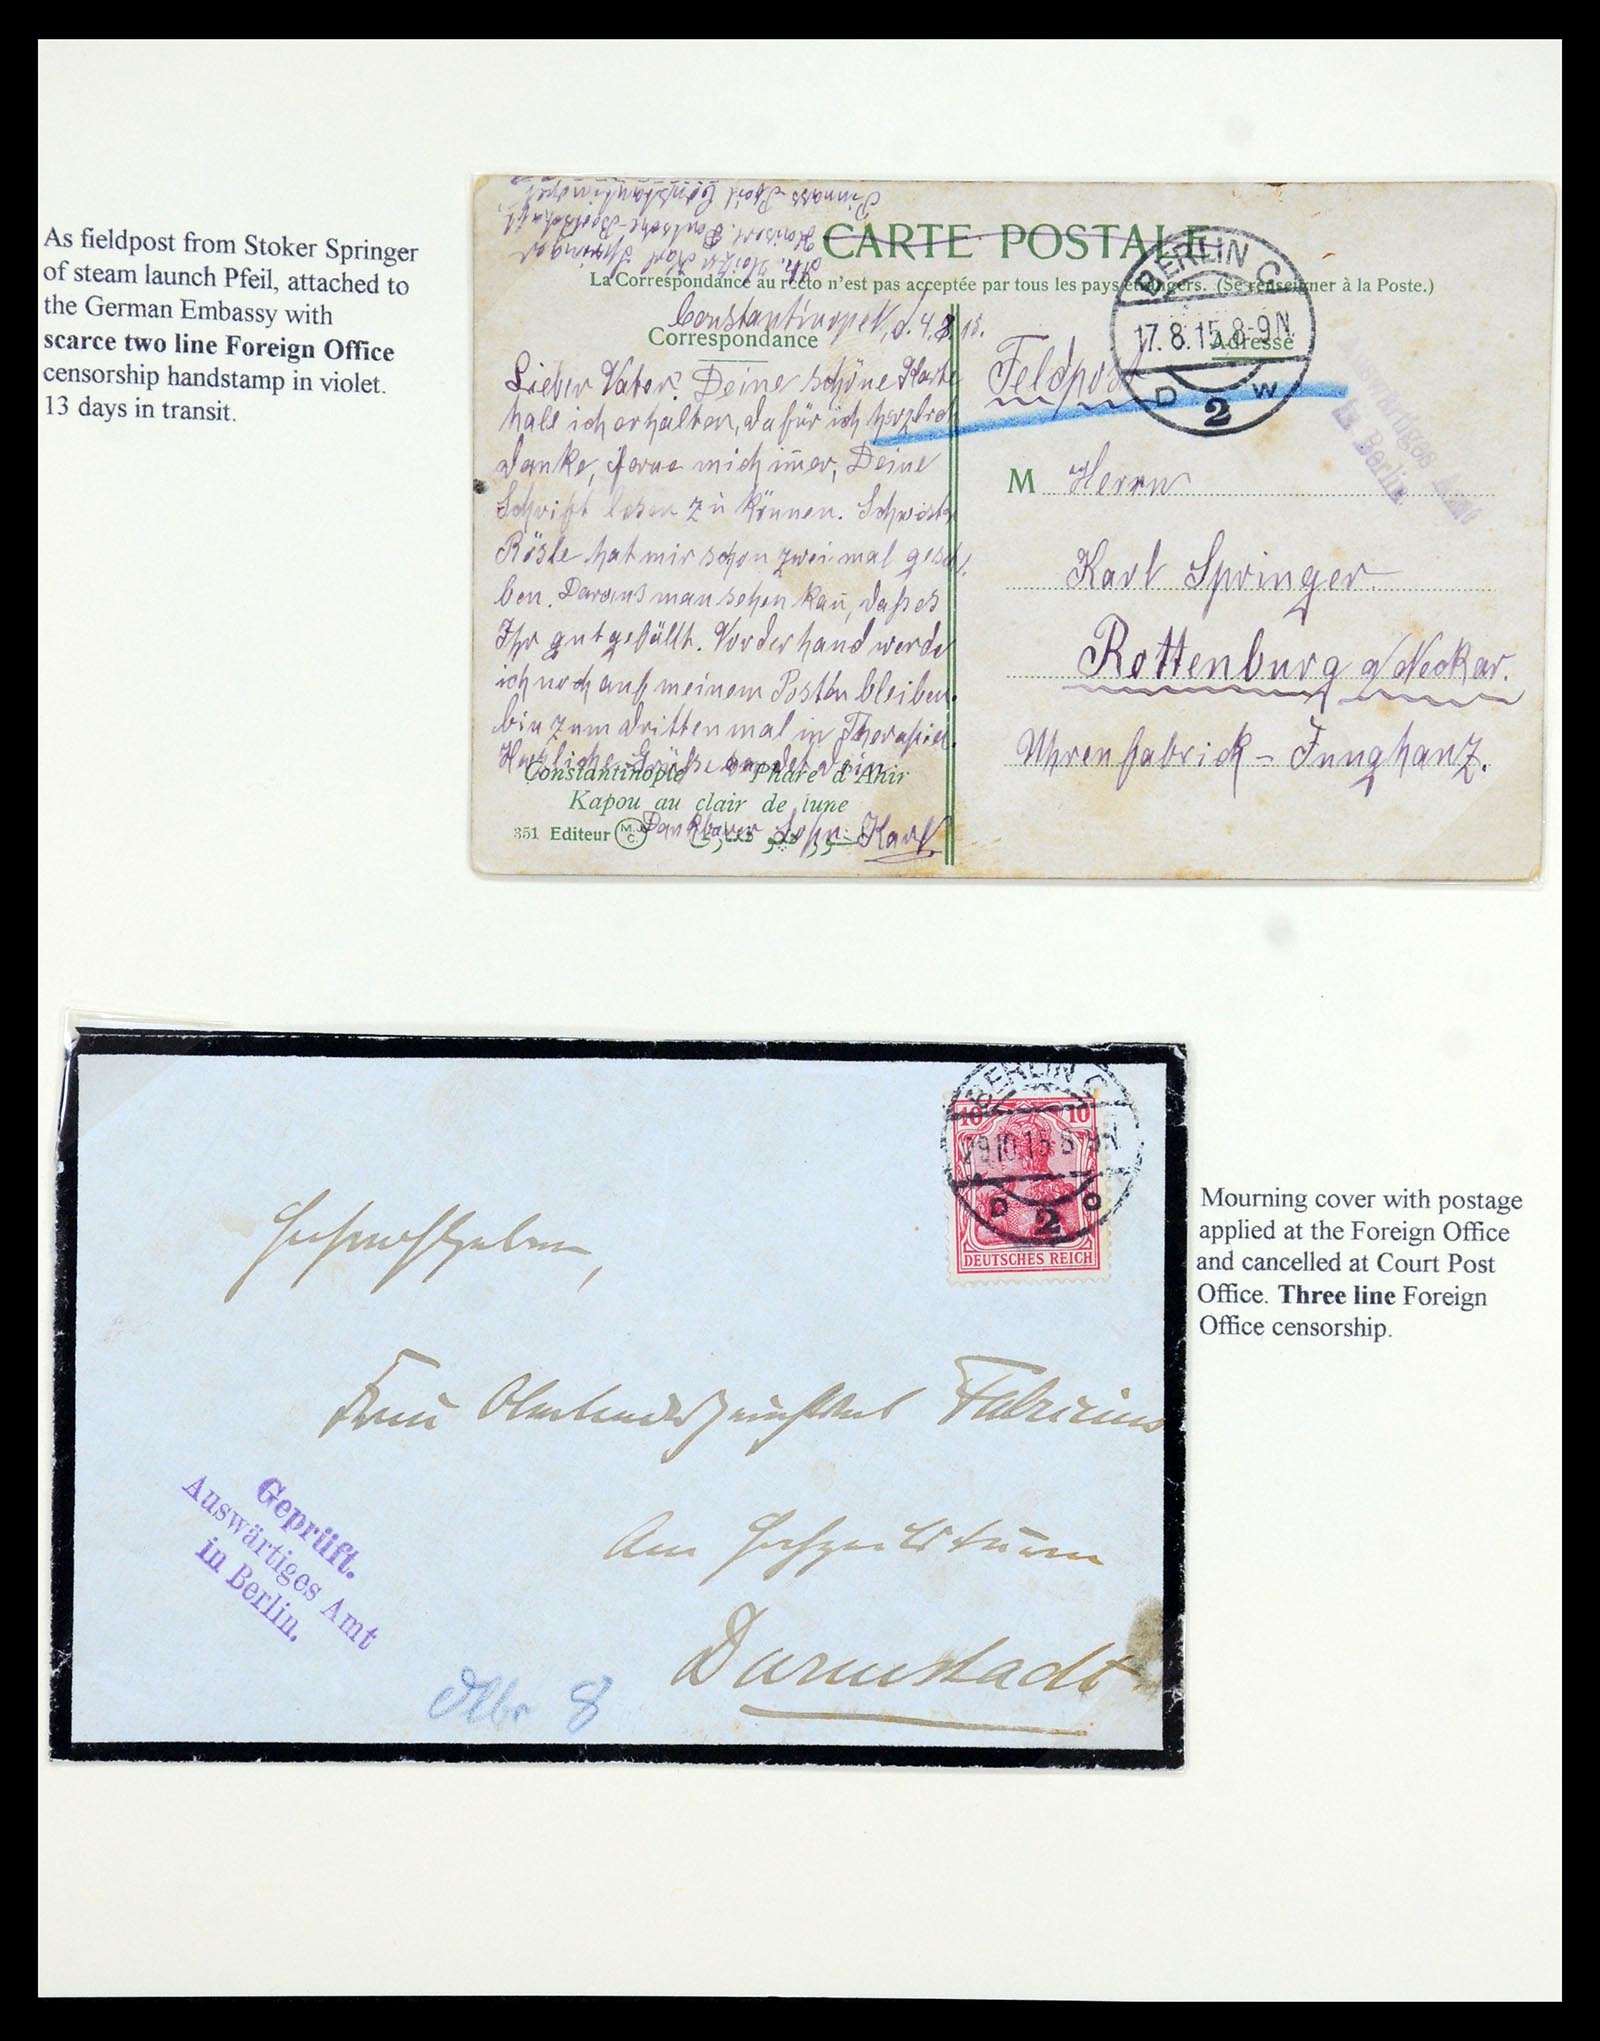 As fieldpost from Stoker Springer
of steam launch Pfeil, attached to
the German Embassy with
scarce two line Foreign Office
censorship handstamp in violet.
13 days in transit.
Karl Springer
CARTE POSTALE
La Correspondance au recto n'est pas acceptée par tous les pays étrangers. (Se renseigner à la Poste.)
Correspondance
Adresse
Constantinopel, d. 4.8.15.
Lieber Vater! Deine schöne Karte
hab ich erhalten, dafür ich herzlich
danke, freue mich im̄er, Deine
Schrift lesen zu können. Schwester
Rösle hat mir schon zweimal geschr.
ben. Daraus man sehen kan̄, daß es
Ihr gut gefällt. Vorderhand werde
ich noch auf meinem Posten bleiben.
bin zum drittenmal in Therapia.
Herzliche Grüße sendet Dein
Dankbarer Sohn Karl
Constantinople Phare d'Ahir
Kapou au clair de lune
351 Editeur M.J.C.
BERLIN C
17.8.15.8-9N
D 2 W
Feldpost
Auswärtiges Amt
in Berlin.
M Herrn
Karl Springer
Rottenburg a/Neckar.
Uhrenfabrick - Junghanz.
BERLIN C
29.10.15 8-9N
D 2 O
10 10
DEUTSCHES REICH
Frau Fabricius
Am
Darmstadt
Geprüft.
Auswärtiges Amt
in Berlin.
8
Mourning cover with postage
applied at the Foreign Office
and cancelled at Court Post
Office. Three line Foreign
Office censorship.